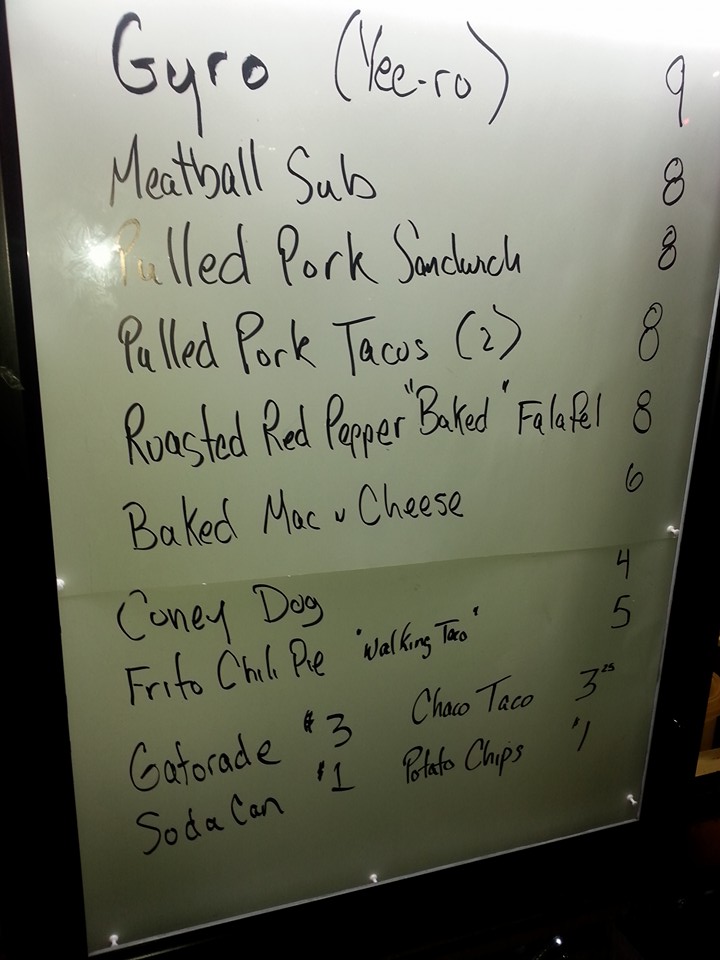 Gyro (Yee-ro) 9
Meatball Sub 8
Pulled Pork Sandwich 8
Pulled Pork Tacos (2) 8
Roasted Red Pepper "Baked" Falafel 8
Baked Mac n Cheese 6
Coney Dog 4
Frito Chili Pie "Walking Taco" 5
Gatorade $3 Choco Taco 3.25
Soda Can $1 Potato Chips $1